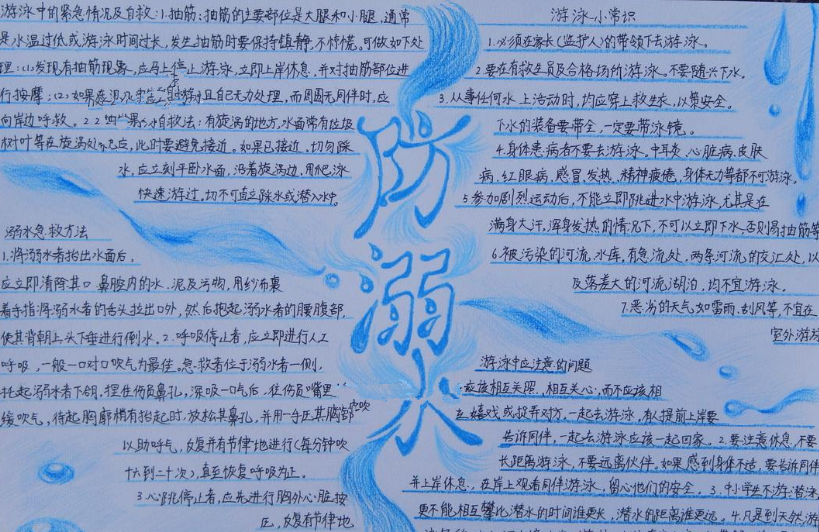 游泳中的紧急情况及自救:1.抽筋:抽筋的主要部位是大腿和小腿,通常
是水温过低或游泳时间过长,发生抽筋时要保持镇静,不惊慌。可做如下处
理:(1)发现有抽筋现象,应马上停止游泳,立即上岸休息,并对抽筋部位进
行按摩;(2)如果在 且自己无力处理,而周围无同伴时,应
向岸边呼救。2. 自救法:有旋涡的地方,水面常有垃圾
树叶等在旋涡处 应,此时要避免接近。如果已接近,切勿踩
水,应立刻平卧水面,沿着旋涡边,用 泳
快速游过,切不可直立踩水或潜入水中。
溺水急救方法
1.将溺水者抬出水面后,
应立即清除其口鼻腔内的水、泥及污物,用纱布裹
着手指将溺水者的舌头拉出口外,然后抱起溺水者的腰腹部,
使其背朝上头下垂进行倒水。2.呼吸停止者,应立即进行人工
呼吸,一般一口对口吹气为最佳。急救者位于溺水者一侧,
托起溺水者下颌,捏住伤员鼻孔,深吸一口气后,往伤员嘴里
缓吹气,待起胸廓稍有抬起时,放松其鼻孔,并用一手压其胸部
以助呼气,反复并有节律地进行(每分钟吹
十六到二十次),直至恢复呼吸为止。
3.心跳停止者,应先进行胸外心脏按
反复有节律地
防溺水
游泳小常识
1.必须在家长(监护人)的带领下去游泳。
2.要在有救生员及合格场所游泳。不要随兴下水。
3.从事任何水上活动时,均应穿上救生衣,以策安全。
下水的装备要带全,一定要带泳镜。
4.身体患病者不要去游泳。中耳炎、心脏病、皮肤
病、红眼病、感冒、发热、精神疲倦、身体无力等都不可游泳。
5.参加剧烈运动后,不能立即跳进水中游泳,尤其是在
满身大汗,浑身发热的情况下,不可以立即下水,否则易抽筋等
6.被污染的河流、水库,有急流处,两条河流的交汇处,以
及落差大的河流湖泊,均不宜游泳。
7.恶劣的天气如雷雨、刮风等,不宜在
室外游泳
游泳中应注意的问题
应该相互关照、相互关心,而不应该相
互嬉戏或捉弄对方,一起去游泳,有人提前上岸要
告诉同伴,一起去游泳应该一起回家。2.要注意休息,不要
长距离游泳,不要远离伙伴。如果感到身体不适,要告诉同伴
并上岸休息,在岸上观看同伴游泳,留心他们的安全。3.中小学生不游潜泳,
更不能相互攀比潜水的时间谁更长,潜水的距离谁更远。4.凡是到天然游